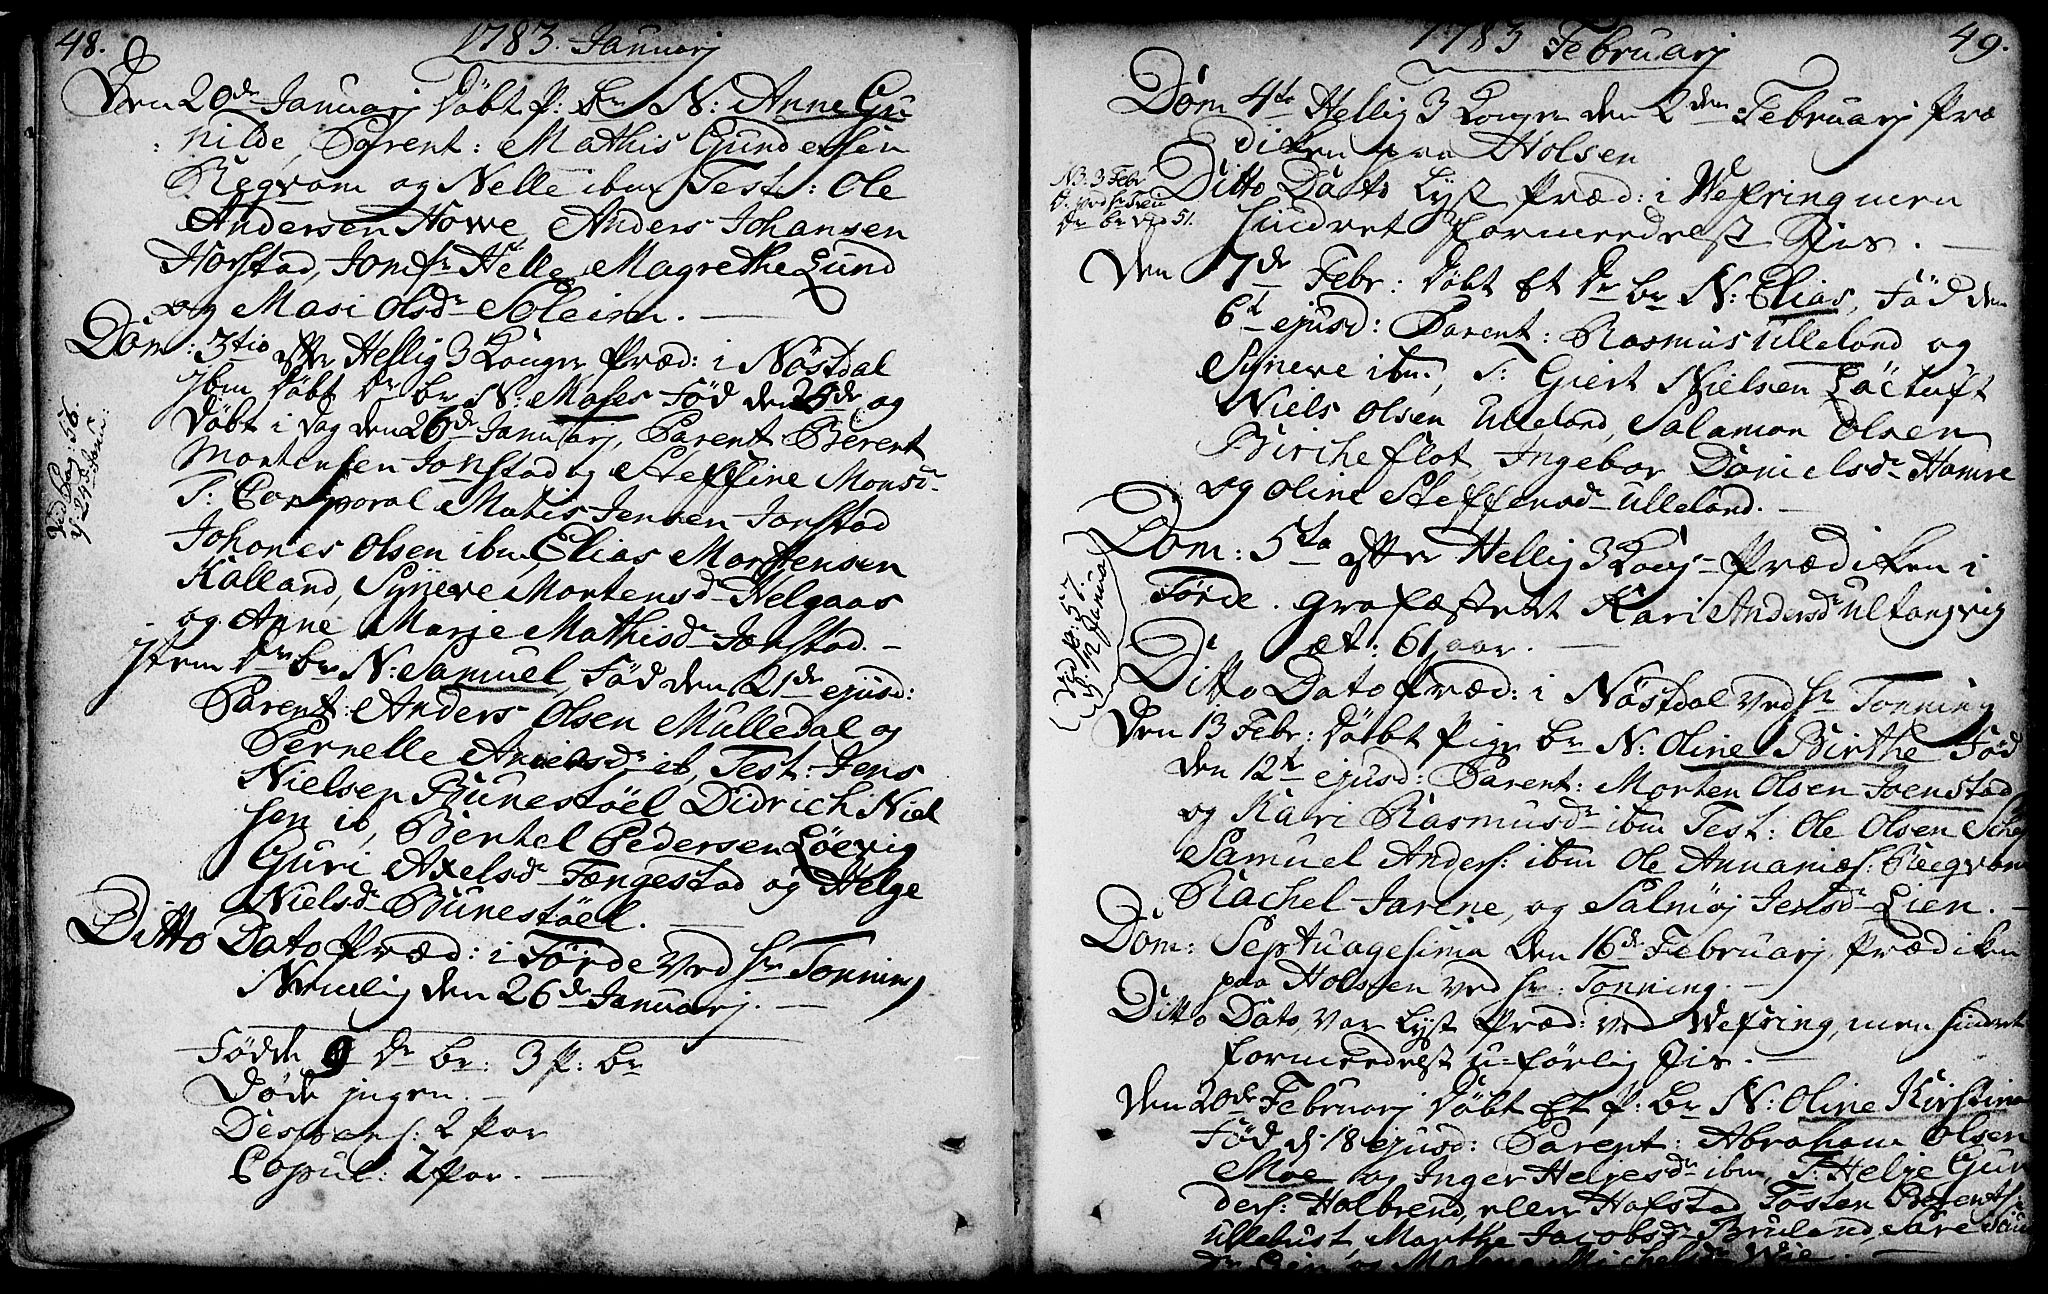 48.
1783. Januarj
Den 20de Januarj Döbt P: Br N: Anne Gu
nilde, Parent: Mathis Gundersen
Reqvam og Nelle ibm Test: Ole
Andersen Howe, Anders Johansen
Horstad, Jon Helle Magrethe Lund
og Masi Olsdr Soleim.
Dom: 3tio efter Hellig 3 Konger Præd: i Nöstdal
Ibm Döbt Dr Br N: Moses Föd den 25de og
Döbt i Dag den 26de Januarj, Parent Berent
Mortensen Jonstad og Steffine Monsdr
T: Corporal Matis Jensen Jonstad
Johanes Olsen ibm, Elias Mortensen
Kalland, Synneve Mortensdr Helgaas
og Anne Marje Mathisdr Jonstad.
Item Dr Br N: Samuel, Föd den 21de ejusd:
Parent: Anders Olsen Mulledal og
Pernelle Anielsdr ib, Test: Jens
Nielsen Bunestöel, Didrich Niel
sen ib, Bertel Pedersen Löevig
Guri Axelsdr Fængestad og Helge
Nielsdr Bunestöel.
Ditto Dato Præd: i Förde ved Hr Tonning
Nemlig den 26de Januarj.
Födde 9 Dr Br: 3 P: Br
Döde jngen.
Dispens: 2 Par
Copul: 2 Par.
Ved Pag: 56.
d: 24d Janu:
49.
1783 Februarj
Dom 4te Hellig 3 Konger den 2den Februarj Præ
diken paa Holsen
Ditto Dato Lyst Præd: i Wefring men
hindret formedelst Iis.
NB. 3 Febr
Dr Br ved 51.
Den 7de Febr: Döbt Et Dr Br N: Elias, Föd den
6te ejusd: Parent: Rasmus Ulleland og
Syneve ibm, T: Giert Nielsen Löctuft
Niels Olsen Ulleland, Salamon Olsen
Bircheflot, Ingebor Danielsdr Hamre
og Oline Steffensdr Ulleland.
Dom: 5ta efter Hellig 3 Kong Prædiken i
Förde. Grafæstett Kari Andersdr Ultangvig
æt: 61 aar.
Ved P: 57.
d: 12 Janua
Ditto Dato Præd: i Nöstdal ved Hr Tonning
Den 13 Febr: Döbt Pige Br N: Oline Birthe Föd
den 12te ejusd: Parent: Morten Olsen Joenstad
og Kari Rasmusdr ibm Test: Ole Olsen
Samuel Anders: ibm Ole Annanias: Reqvam
Rachel Jarene, og Salmöj Jensdr Lien.
Dom: Septuagesima den 16de Februarj Prædiken
paa Holsen ved Hr: Tonning.
Ditto Dato, var Lyst Præd: ved Wefring, men hindret
formedelst u-förlig Iis.
Den 20de Februarj Döbt Et P: Br N: Oline Kirstina
Föd d: 18 ejusd: Parent: Abraham Olsen
Moe og Inger Helgesdr ibm, T: Helge Gun
ders: Halbrend, eller Hafstad, Tosten Berents:
Ullelust, Marthe Jacobsdr Bruland, Sare
dr Lien, og Malene Michelsdr Wie.